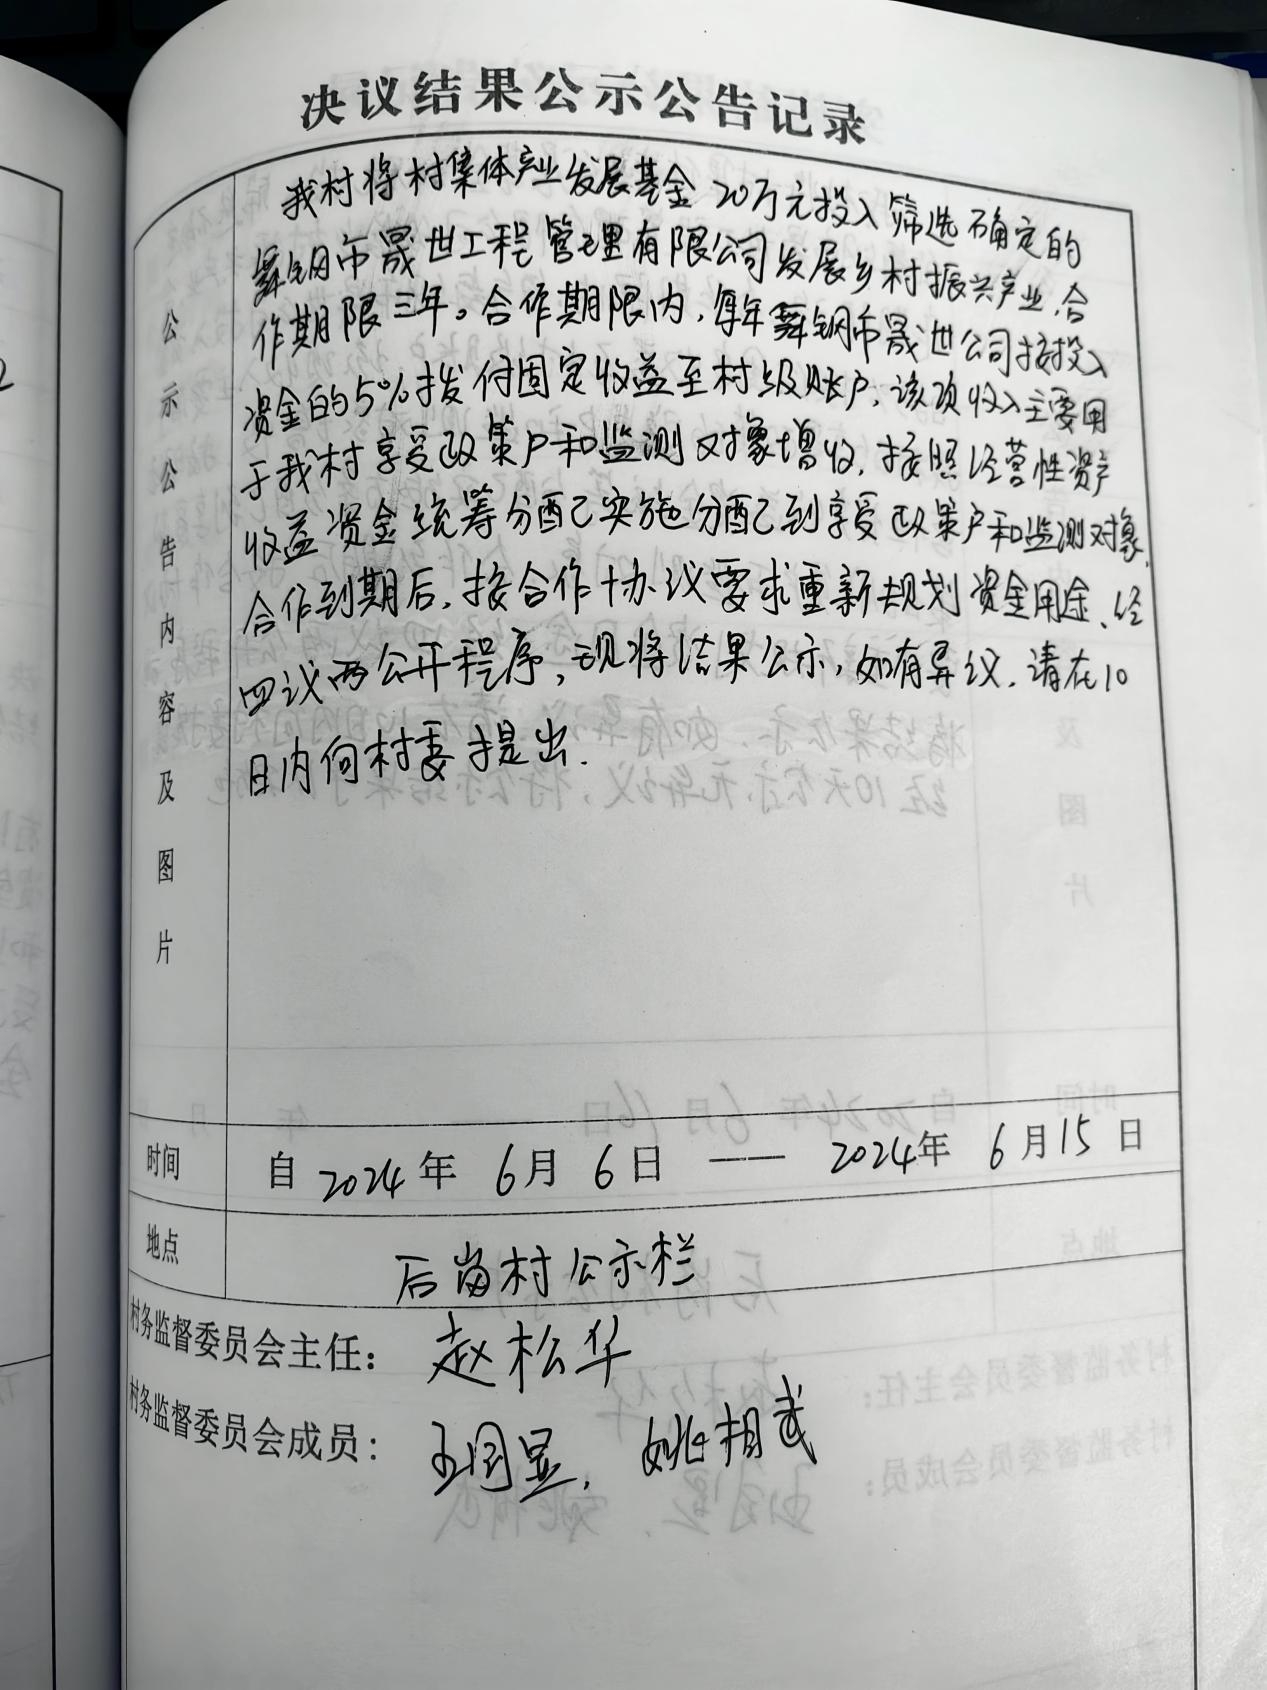 决议结果公示公告记录
公示公告内容及图片
我村将村集体产业发展基金20万元投入筛选确定的
舞钢市晟世工程管理有限公司发展乡村振兴产业,合
作期限三年。合作期限内,每年舞钢市晟世公司按投入
资金的5%拨付固定收益至村级账户,该项收入主要用
于我村享受政策户和监测对象增收,按照经营性资产
收益资金统筹分配实施分配到享受政策户和监测对象,
合作到期后,按合作协议要求重新规划资金用途、经
四议两公开程序,现将结果公示,如有异议,请在10
日内向村委提出.
时间 自2024年 6月 6日 —— 2024年 6月15日
地点 后岗村公示栏
村务监督委员会主任: 赵松华
村务监督委员会成员: 王国显, 姚相武